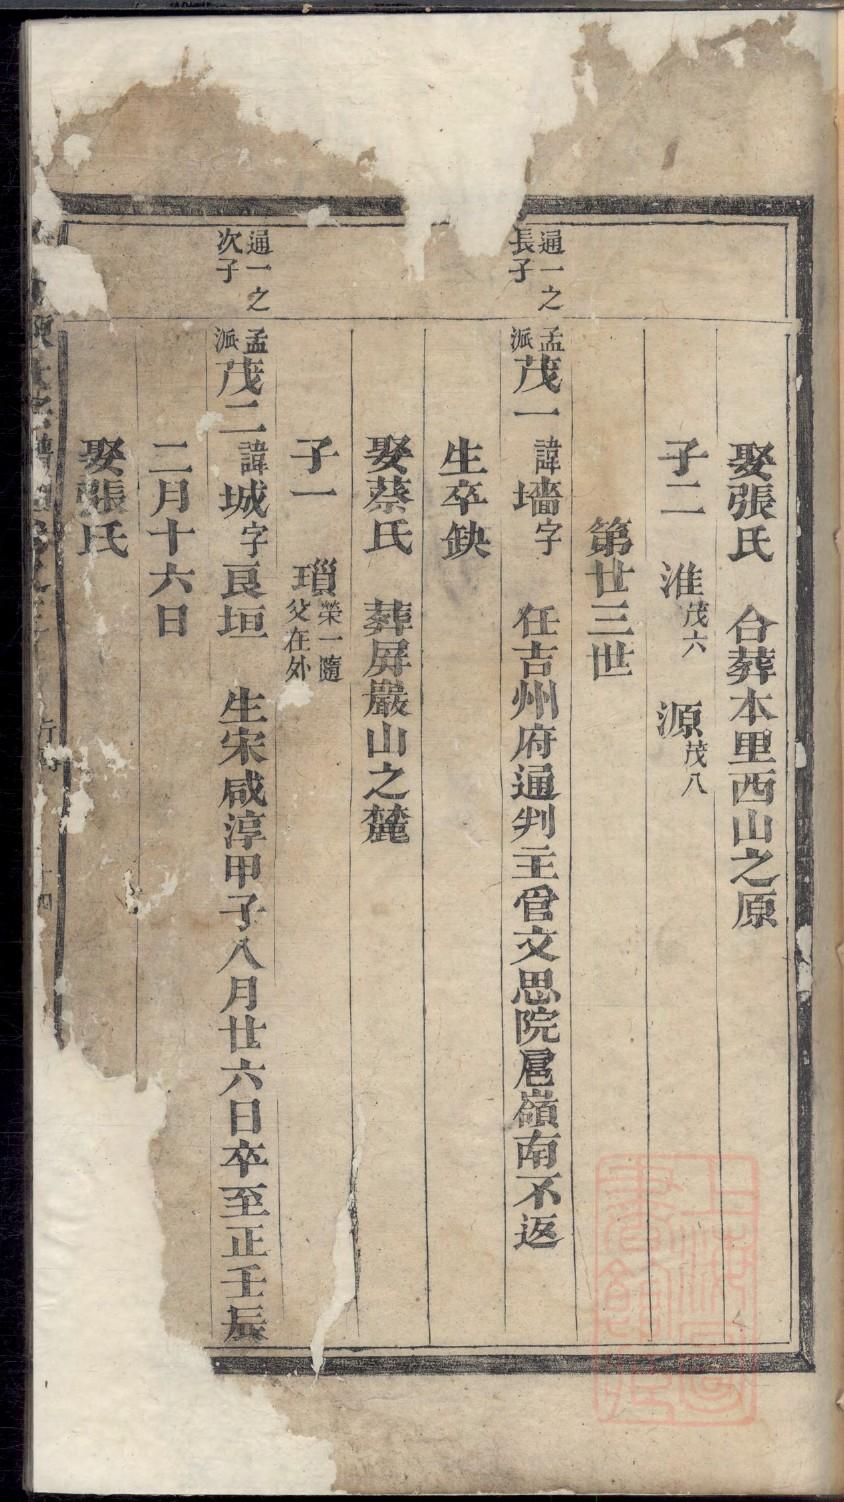 娶張氏　合葬本里西山之原
子二　淮茂六　源茂八
第廿三世
通一之長子
孟派茂一諱墻字　任吉州府通判主管文思院扈嶺南不返
生卒缺
娶蔡氏　葬屏巖山之麓
子一　瑣榮一隨父在外
通一之次子
孟派茂二諱城字良垣　生宋咸淳甲子八月廿六日卒至正壬辰
二月十六日
娶張氏
上海圖書館藏